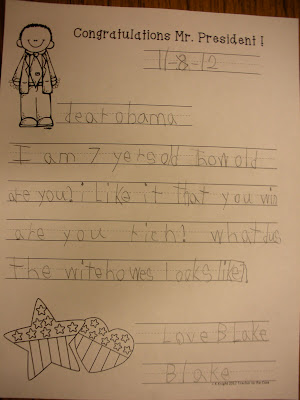 Congratulations Mr. President !
11-8-12
dear obama
I am 7 yersold how old
are you? i Like it that you win
are you rich? what dus
the witehowes looks like?
Love BLake
Blake